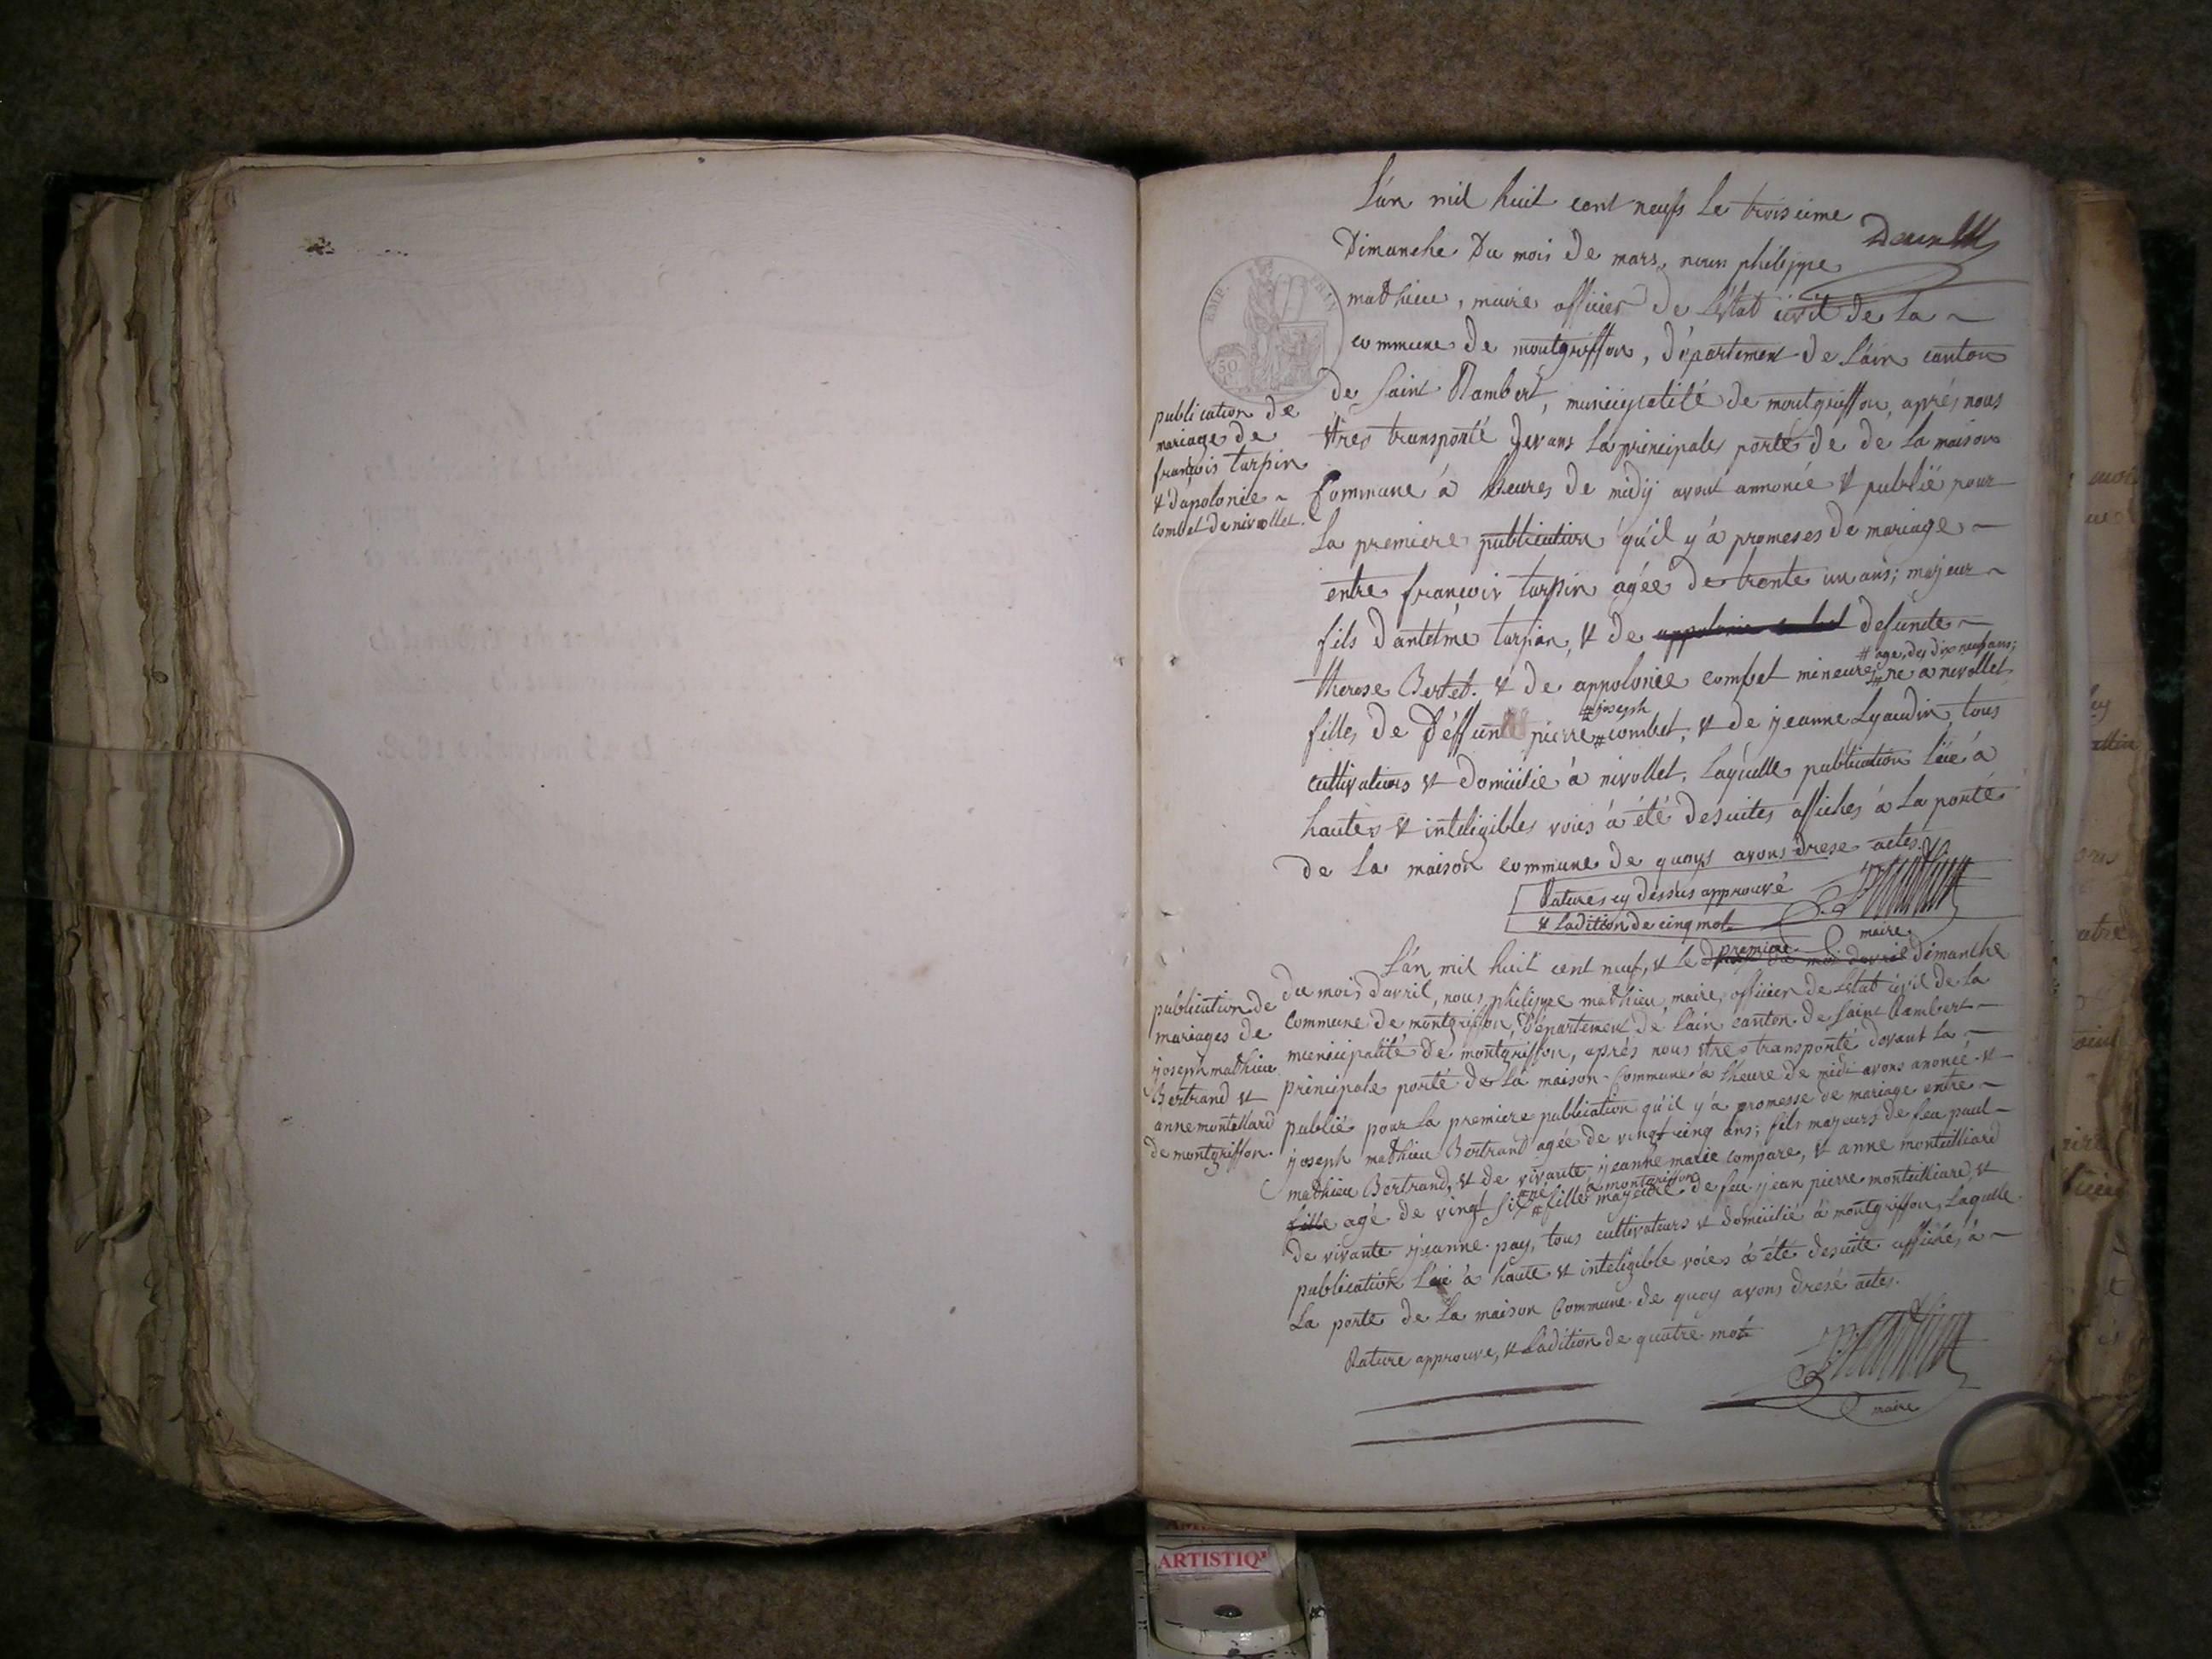 L'an mil huit cent neufs le troisieme
Dimanche Du mois de mars, nous philippe
mathieu, maire officier de L'Etat civil de La
commune de montgriffon, département de L'ain canton
de Saint Rambert, municipalité de montgriffon, aprés nous
être transporté devans la principale porte de de la maison
Commune á heures de midÿ avont annoncé & publié pour
La premiere publication qu'il y á promeses de mariage
entre françois turpin agée de trente un ans; majeur
fils d'antelme turpin, & de appolonie combet defunete
# age des dix neuf ans;
therese Bertet. & de appolonie combet mineure # ne a nivollet
# joseph
fille de déffunt pierre # combet, & de jeanne Lyaudin, tous
cultivateurs & domicilié á nivollet, Laquelle publication Lüe á
hautes & inteligibles voies á été desuites affiches á La porte
de La maison commune de quoys avons drese actes.
Ratures cy dessus approuvé
& L'adition de cinq mot
maire
publication de
mariage de
françois turpin
& d'apolonie
combet de nivollet.
EMP. FRAN
50
premiere
L'án mil huit cent neuf, & le du mois d'avril dimanche
du mois d'avril, nous philippe mathieu maire, officier de L'etat civil de La
Commune de montgriffon, département de L'ain canton de Saint Rambert
municipalité de montgriffon, aprés nous être transporté devant La
principale porte de la maison Commune á L'heure de midi avons anoncé &
publié pour La premiere publication qu'il y'a promesse de mariage entre
joseph mathieu Bertrand agée de vingt cinq ans; fils majeurs de feu paul
mathieu Bertrand, & de vivante jeanne marie compare, & anne monteilliard
# né á montgriffon
fille agé de vingt six # fille majeure de feu jean pierre monteilliard, &
de vivante jeanne pay, tous cultivateurs & domicilié á montgriffon, Laquelle
publication Lüe á haute & inteligible voies á été desuite affiché, á
La porte de La maison Commune de quoy avons dresé actes.
Rature approuve, & L'adition de quatre mot
maire
publication de
mariages de
joseph mathieu
Bertrand &
anne montelliard
de montgriffon.
ARTISTIQ